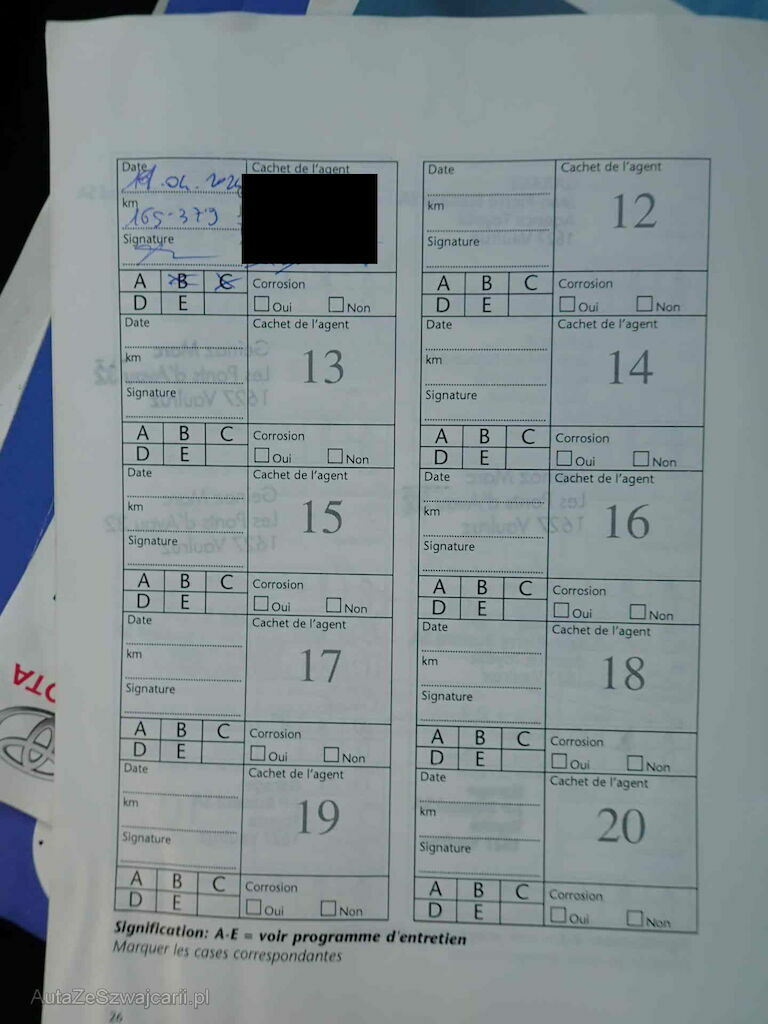 Date
19.04.2024
Cachet de l'agent
km
165-379
Signature
A B C
D E
Corrosion
Oui Non
Date
Cachet de l'agent
12
km
Signature
A B C
D E
Corrosion
Oui Non
Date
Cachet de l'agent
13
km
Signature
A B C
D E
Corrosion
Oui Non
Date
Cachet de l'agent
14
km
Signature
A B C
D E
Corrosion
Oui Non
Date
Cachet de l'agent
15
km
Signature
A B C
D E
Corrosion
Oui Non
Date
Cachet de l'agent
16
km
Signature
A B C
D E
Corrosion
Oui Non
Date
Cachet de l'agent
17
km
Signature
A B C
D E
Corrosion
Oui Non
Date
Cachet de l'agent
18
km
Signature
A B C
D E
Corrosion
Oui Non
Date
Cachet de l'agent
19
km
Signature
A B C
D E
Corrosion
Oui Non
Date
Cachet de l'agent
20
km
Signature
A B C
D E
Corrosion
Oui Non
Signification: A-E = voir programme d'entretien
Marquer les cases correspondantes
26
AutaZeSzwajcarii.pl